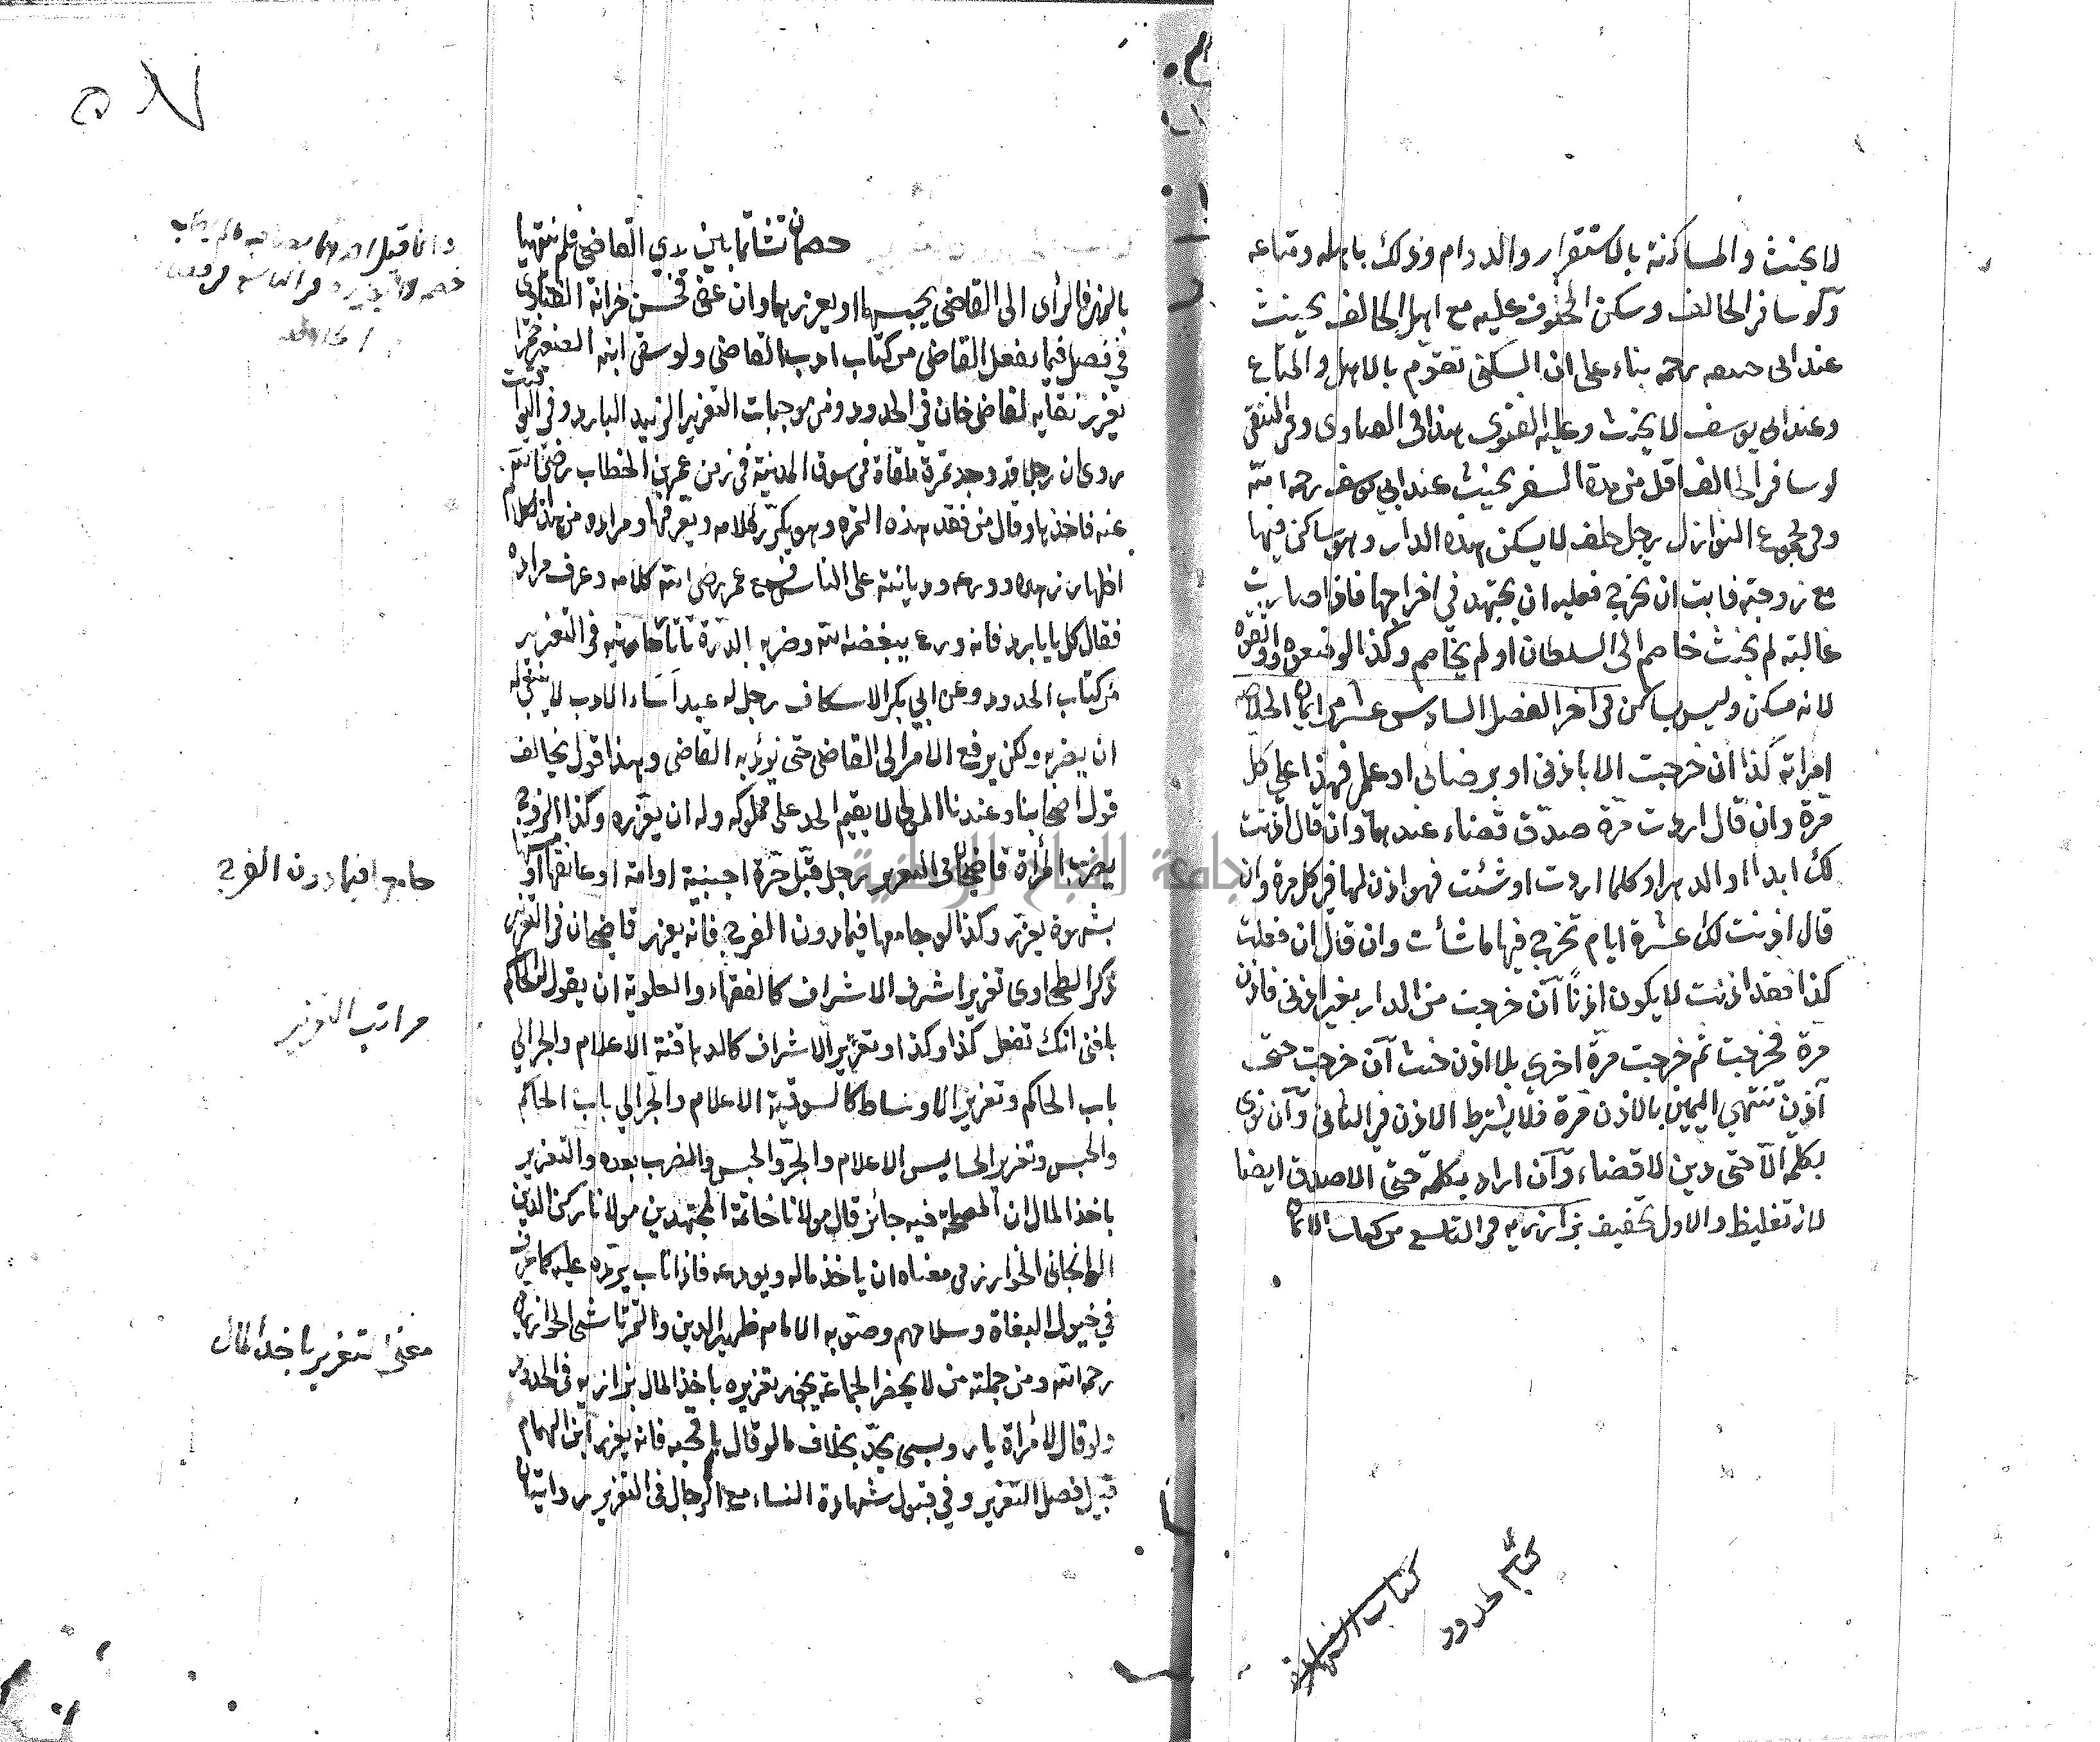 لا يحنث والمساكنة بالاستقرار والدوام وذلك باهله ومتاعه
ولو سافر الحالف وسكن المحلوف عليه مع اهل الحالف يحنث
عند ابى حنيفه رحمه بناء على ان السكنى تقوم بالاهل والمتاع
وعند ابى يوسف لا يحنث وعليه الفتوى هذا فى الفتاوى وفى المنتقى
لو سافر الحالف اقل من مدة السفر يحنث عند ابي يوسف رحمه الله
وفى مجموع النوازل رجل حلف لا يسكن هذه الدار وهو ساكن فيها
مع زوجته فابت ان تخرج فعليه ان يجتهد في اخراجها فاذا صارت
غالبته لم يحنث خاصم الى السلطان او لم يخاصم وكذا لو منعوه واوثقوه
لانه مسكن وليس بساكن فى اخر الفصل السادس عشر من ايمان الخلاصه
امراته كذا ان خرجت الا باذنى او برضائى او علمى فهذا على كل
مرة وان قال اردت مرة صدق قضاء عندهما وان قال اذنت
لك ابدا او الدهر او كلما اردت او شئت فهو اذن لها فى كل مرة وان
قال اذنت لك عشرة ايام تخرج فيها ما شأت وان قال ان فعلت
كذا فقد اذنت لا يكون اذنًا ان خرجت من الدار بغير اذنى فاذن
مرة فخرجت ثم خرجت مرة اخرى بلا اذن حنث ان خرجت حتى
آذن تنتهي اليمين بالاذن مرة فلا يشترط الاذن فى الثانى وان نوى
بكلمة الا حتى دين لا قضاء وان اراد بكلمة حتى الا صدق ايضا
لانه تغليظ والاول تخفيف بزازيه فى التاسع من كتاب الايمان
كتاب الحدود
خصمان تشاتما بين يدي القاضى فلم ينتهيا
بالنهى فالرأى الى القاضى يحبسهما او يعزرهما وان عفى فحسن خزانة الفتاوى
فى فصل فيما يفعل القاضى من كتاب ادب القاضى ولو سقى ابنه الصغير خمرا
يعزر نقايه لقاضى خان في الحدود ومن موجبات التعزير الزهد البارد وفى اليواقيت
روى ان رجلا قد وجد تمرة ملقاة فى سوق المدينة فى زمن عمر بن الخطاب رضى الله
عنه فاخذها وقال من فقد هذه التمره وهو يكرر كلامه ويعرفها ومراده من هذا الكلام
اظهار زهده وورعه وديانته على الناس فسمع عمر رضى الله كلامه وعرف مراده
فقال كل يا بارد فانه ورع يبغضه الله وضربه بالدرة تاتارخانيه فى التعزير
من كتاب الحدود وعن ابي بكر الاسكاف رجل له عبد اساء الادب لا ينبغى له
ان يضربه ولكن يرفع الامر الى القاضى حتى يؤدبه القاضى وهذا قول يخالف
قول اصحابنا وعندنا المولى لا يقيم الحد على مملوكه وله ان يعزره وكذا الزوج
يضرب امرأة قاضيخان فى التعزير رجل قبّل حرة اجنبية او امة او عانقها او مسها
بشهوة يعزر وكذا لو جامعها فيما دون الفرج فانه يعزر قاضيخان فى التعزير
ذكر الطحاوى تعزير اشرف الاشراف كالفقهاء والعلوية ان يقول الحاكم
بلغنى انك تفعل كذا وكذا وتعزير الاشراف كالدهاقنة الاعلام والجر الي
باب الحاكم وتعزير الاوساط كالسوقية الاعلام والجر الي باب الحاكم
والحبس وتعزير الخسايس الاعلام والجرّ والحبس والضرب بعده والتعزير
باخذ المال ان المصلحة فيه جائز قال مولانا خاتمة المجتهدين مولانا ركن الدين
الوانجانى الخوارزمى معناه ان ياخذ ماله ويودعه فاذا تاب يرده عليه كما عرف
في خيول البغاة وسلاحهم وصوبه الامام ظهير الدين والتمرتاشى الخوارزميان
رحمه الله ومن جملته من لا يحضر الجماعة يجوز تعزيره باخذ المال بزازيه فى الحدود
ولو قال لامرأة يا روسبى يحدّ بخلاف ما لو قال يا قحبه فانه يعزر ابن الهمام
قبيل فصل التعزير وفي قبول شهادة النساء مع الرجال فى التعزير روايتان
جامع فيما دون الفرج
مراتب التعزير
معنى التعزير باخذ المال
جامعة النجاح الوطنية